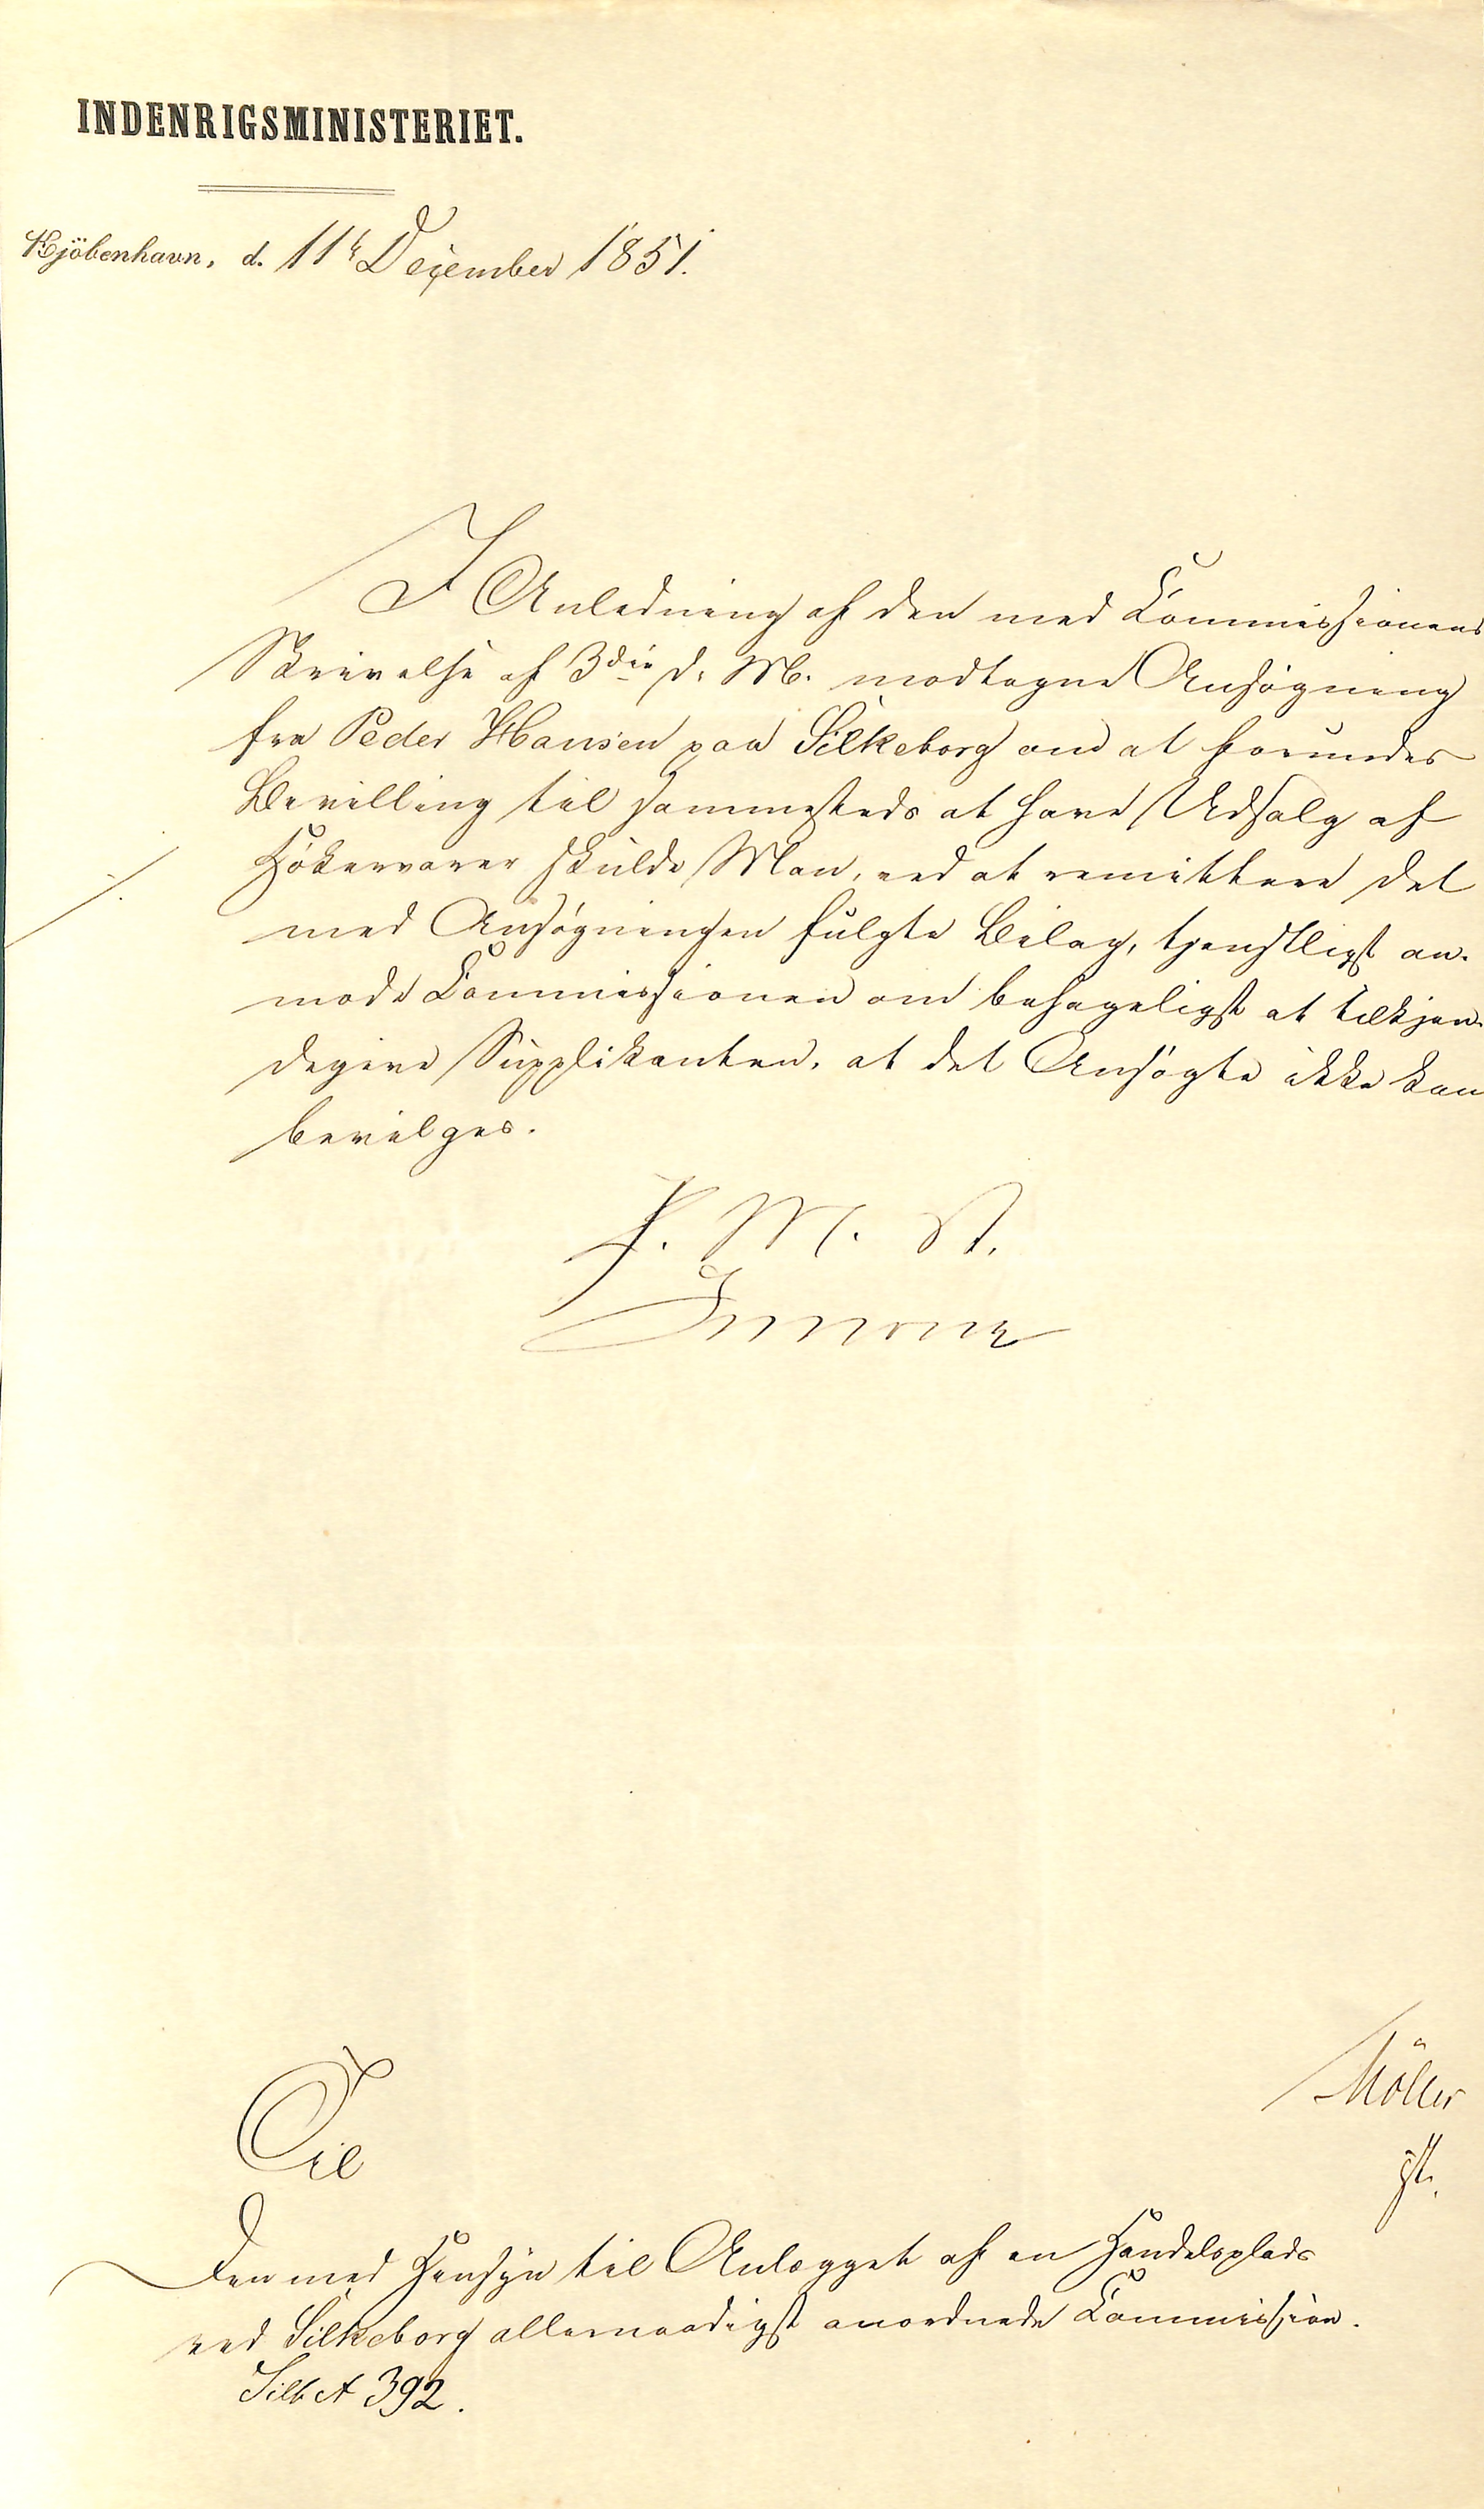 INDENRIGSMINISTERIET.
Kjöbenhavn, d. 11te December 1851.
I Anledning af den med Commissionens
Skrivelse af 3die d. M. modtagne Ansøgning
fra Peder Hansen paa Silkeborg om at forundes
Bevilling til sammesteds at have Udsalg af
Høkervarer skulde Man, ved at remittere det
./.
med Ansøgningen fulgte Bilag, tjenstligst an-
mode Commissionen om behageligst at tilkjen-
degive Supplikanten, at det Ansøgte ikke kan
bevilges.
F. M. A.
Möller
Til
Den med Hensyn til Anlægget af en Handelsplads
ved Silkeborg allernaadigst anordnede Commission.
Silk A 392.